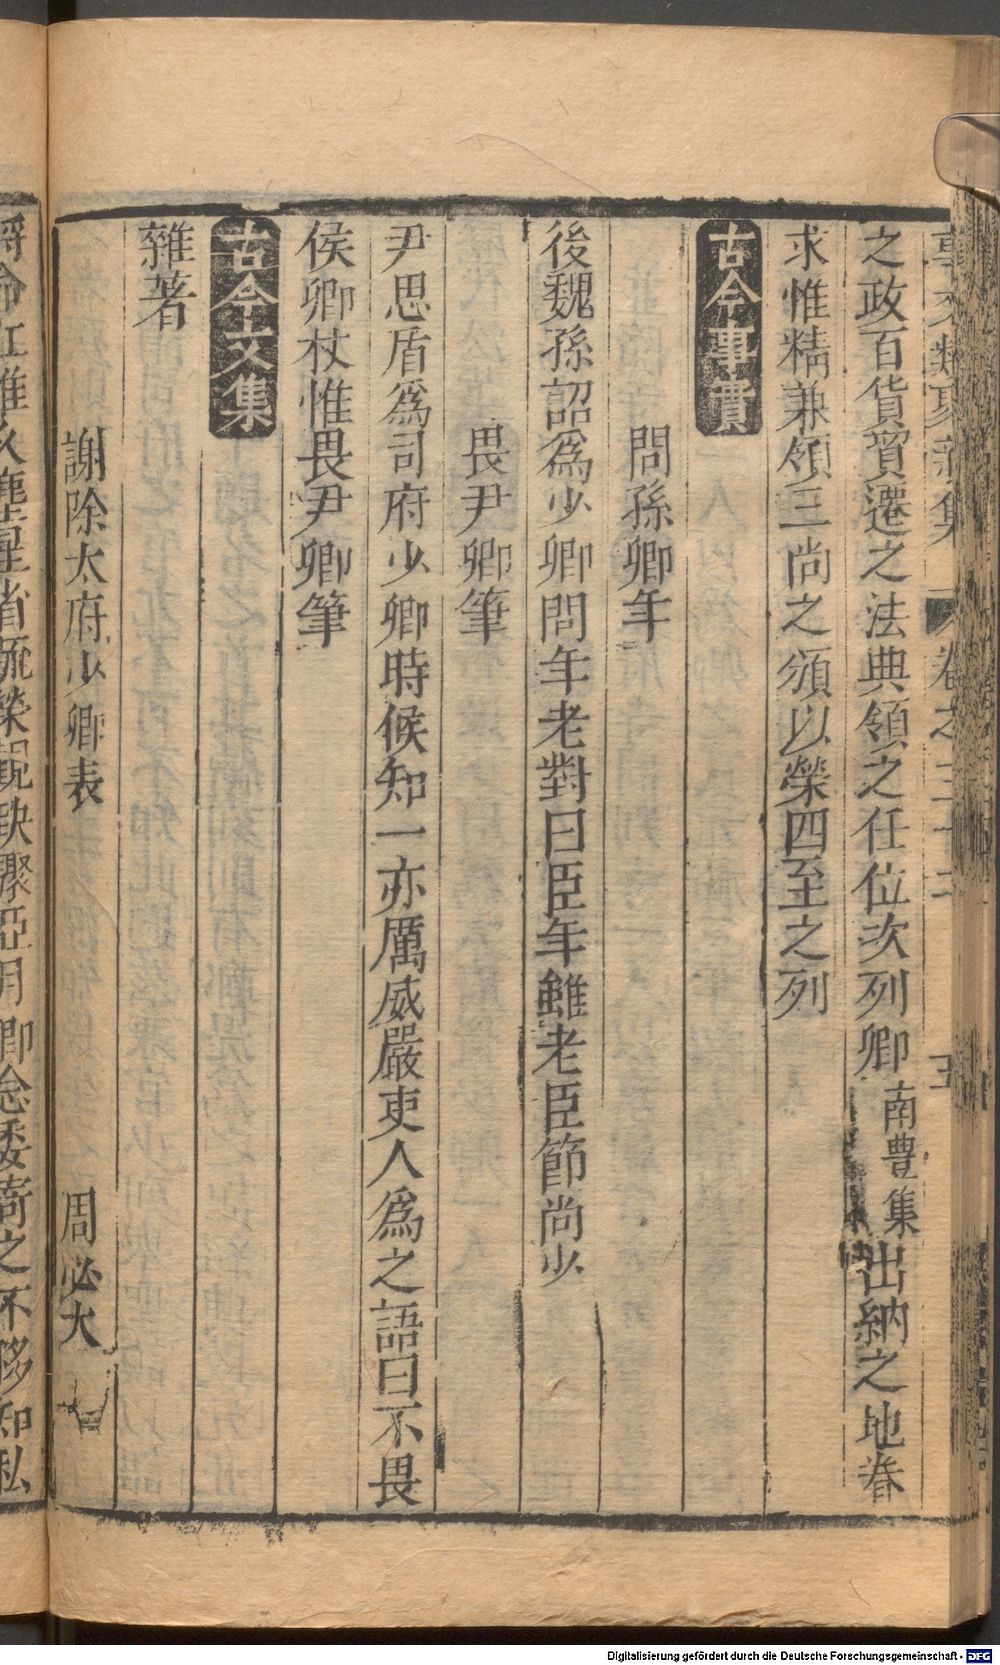 之政百貨貿遷之法典領之任位次列卿南豊集出納之地眷
求惟精兼領三尚之須以榮四至之列
古今事實
問孫卿年
後魏孫詔爲少卿問年老對曰臣年雖老臣節尚少
畏尹卿筆
尹思盾爲司府少卿時候知一亦厲威嚴吏人爲之語曰不畏
侯卿杖惟畏尹卿筆
古今文集
雜著
謝除太府少卿表 周必大
Digitalisierung gefördert durch die Deutsche Forschungsgemeinschaft - DFG